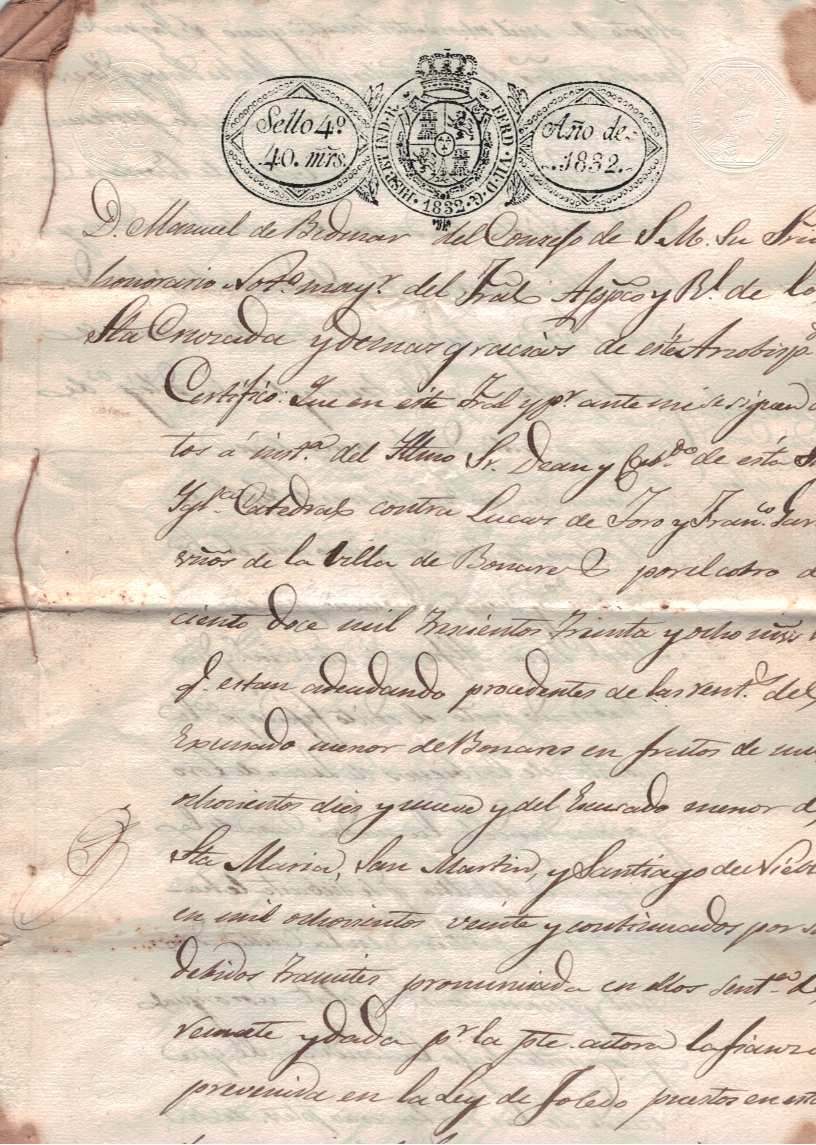 Sello 4º
40. mrs.
HISP. ET IND. R.
FERD. VII. D. G.
1832
Año de
1832.
D. Manuel de Bedmar del Consejo de S. M. Su Srio
honorario Notº mayr. del Tral Appco y Rl. de la
Sta Cruzada y demas gracias de este Arzobispdo
Certifico: Que en este Tral y pr. ante mi se siguen
tos á instª del Iltmo Sr. Dean y Cabdo de esta
Yglª Catedral contra Lucas de Toro y Franco
vños de la Villa de Bonares por el cobro d
ciento doce mil trescientos treinta y ocho mrs
q. estan adeudando procedentes de las rents. del
Escusado menor de Bonares en frutos de mil
ochocientos diez y nueve y del Escusado menor d
Sta Maria, San Martin, y Santiago de Niebl
en mil ochocientos veinte y continuados por s
debidos tramites pronunciada en ellos senta de
remate y dada pr. la pte. actora la fianza
prevenida en la Ley de Toledo puestos en est